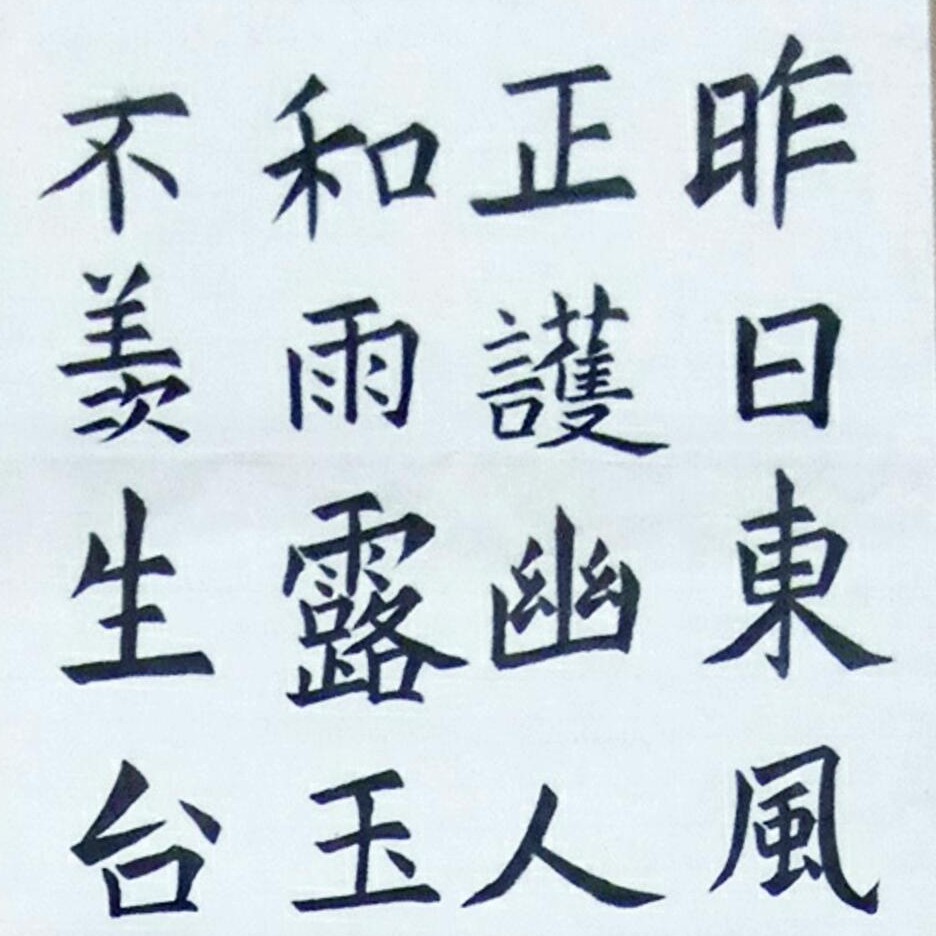 昨日東風
正護幽人
和雨露玉
不羨生台